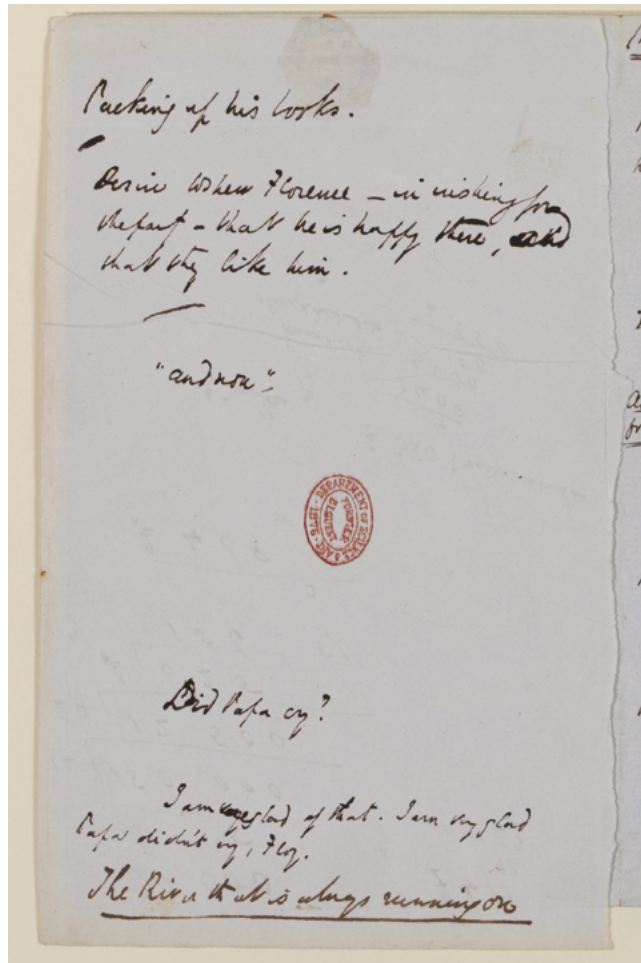 Packing up his books.
Desire to shew Florence – in wishing for
the past – that he is happy there, and
that they like him.
"and now"
DEPARTMENT OF SCIENCE & ART
FORSTER BEQUEST
Did Papa cry?
I am very glad of that. I am very glad
Papa didn't cry, Floy.
The River that is always running on